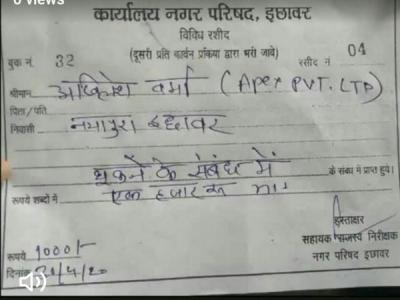 0 views
कार्यालय नगर परिषद, इछावर
विविध रशीद
(दूसरी प्रति कार्बन प्रक्रिया द्वारा भरी जावे)
बुक नं. 32 रसीद नं 04
श्रीमान अखिलेश वर्मा (Apex PVT. LTD)
पिता/पति
निवासी नयापुरा इछावर
थूकने के संबंध में के संबध में प्राप्त हुये।
रूपये शब्दों में एक हजार रू मात्र
हस्ताक्षर
सहायक राजस्व निरीक्षक
नगर परिषद इछावर
रूपये 1000/-
दिनांक /4/20